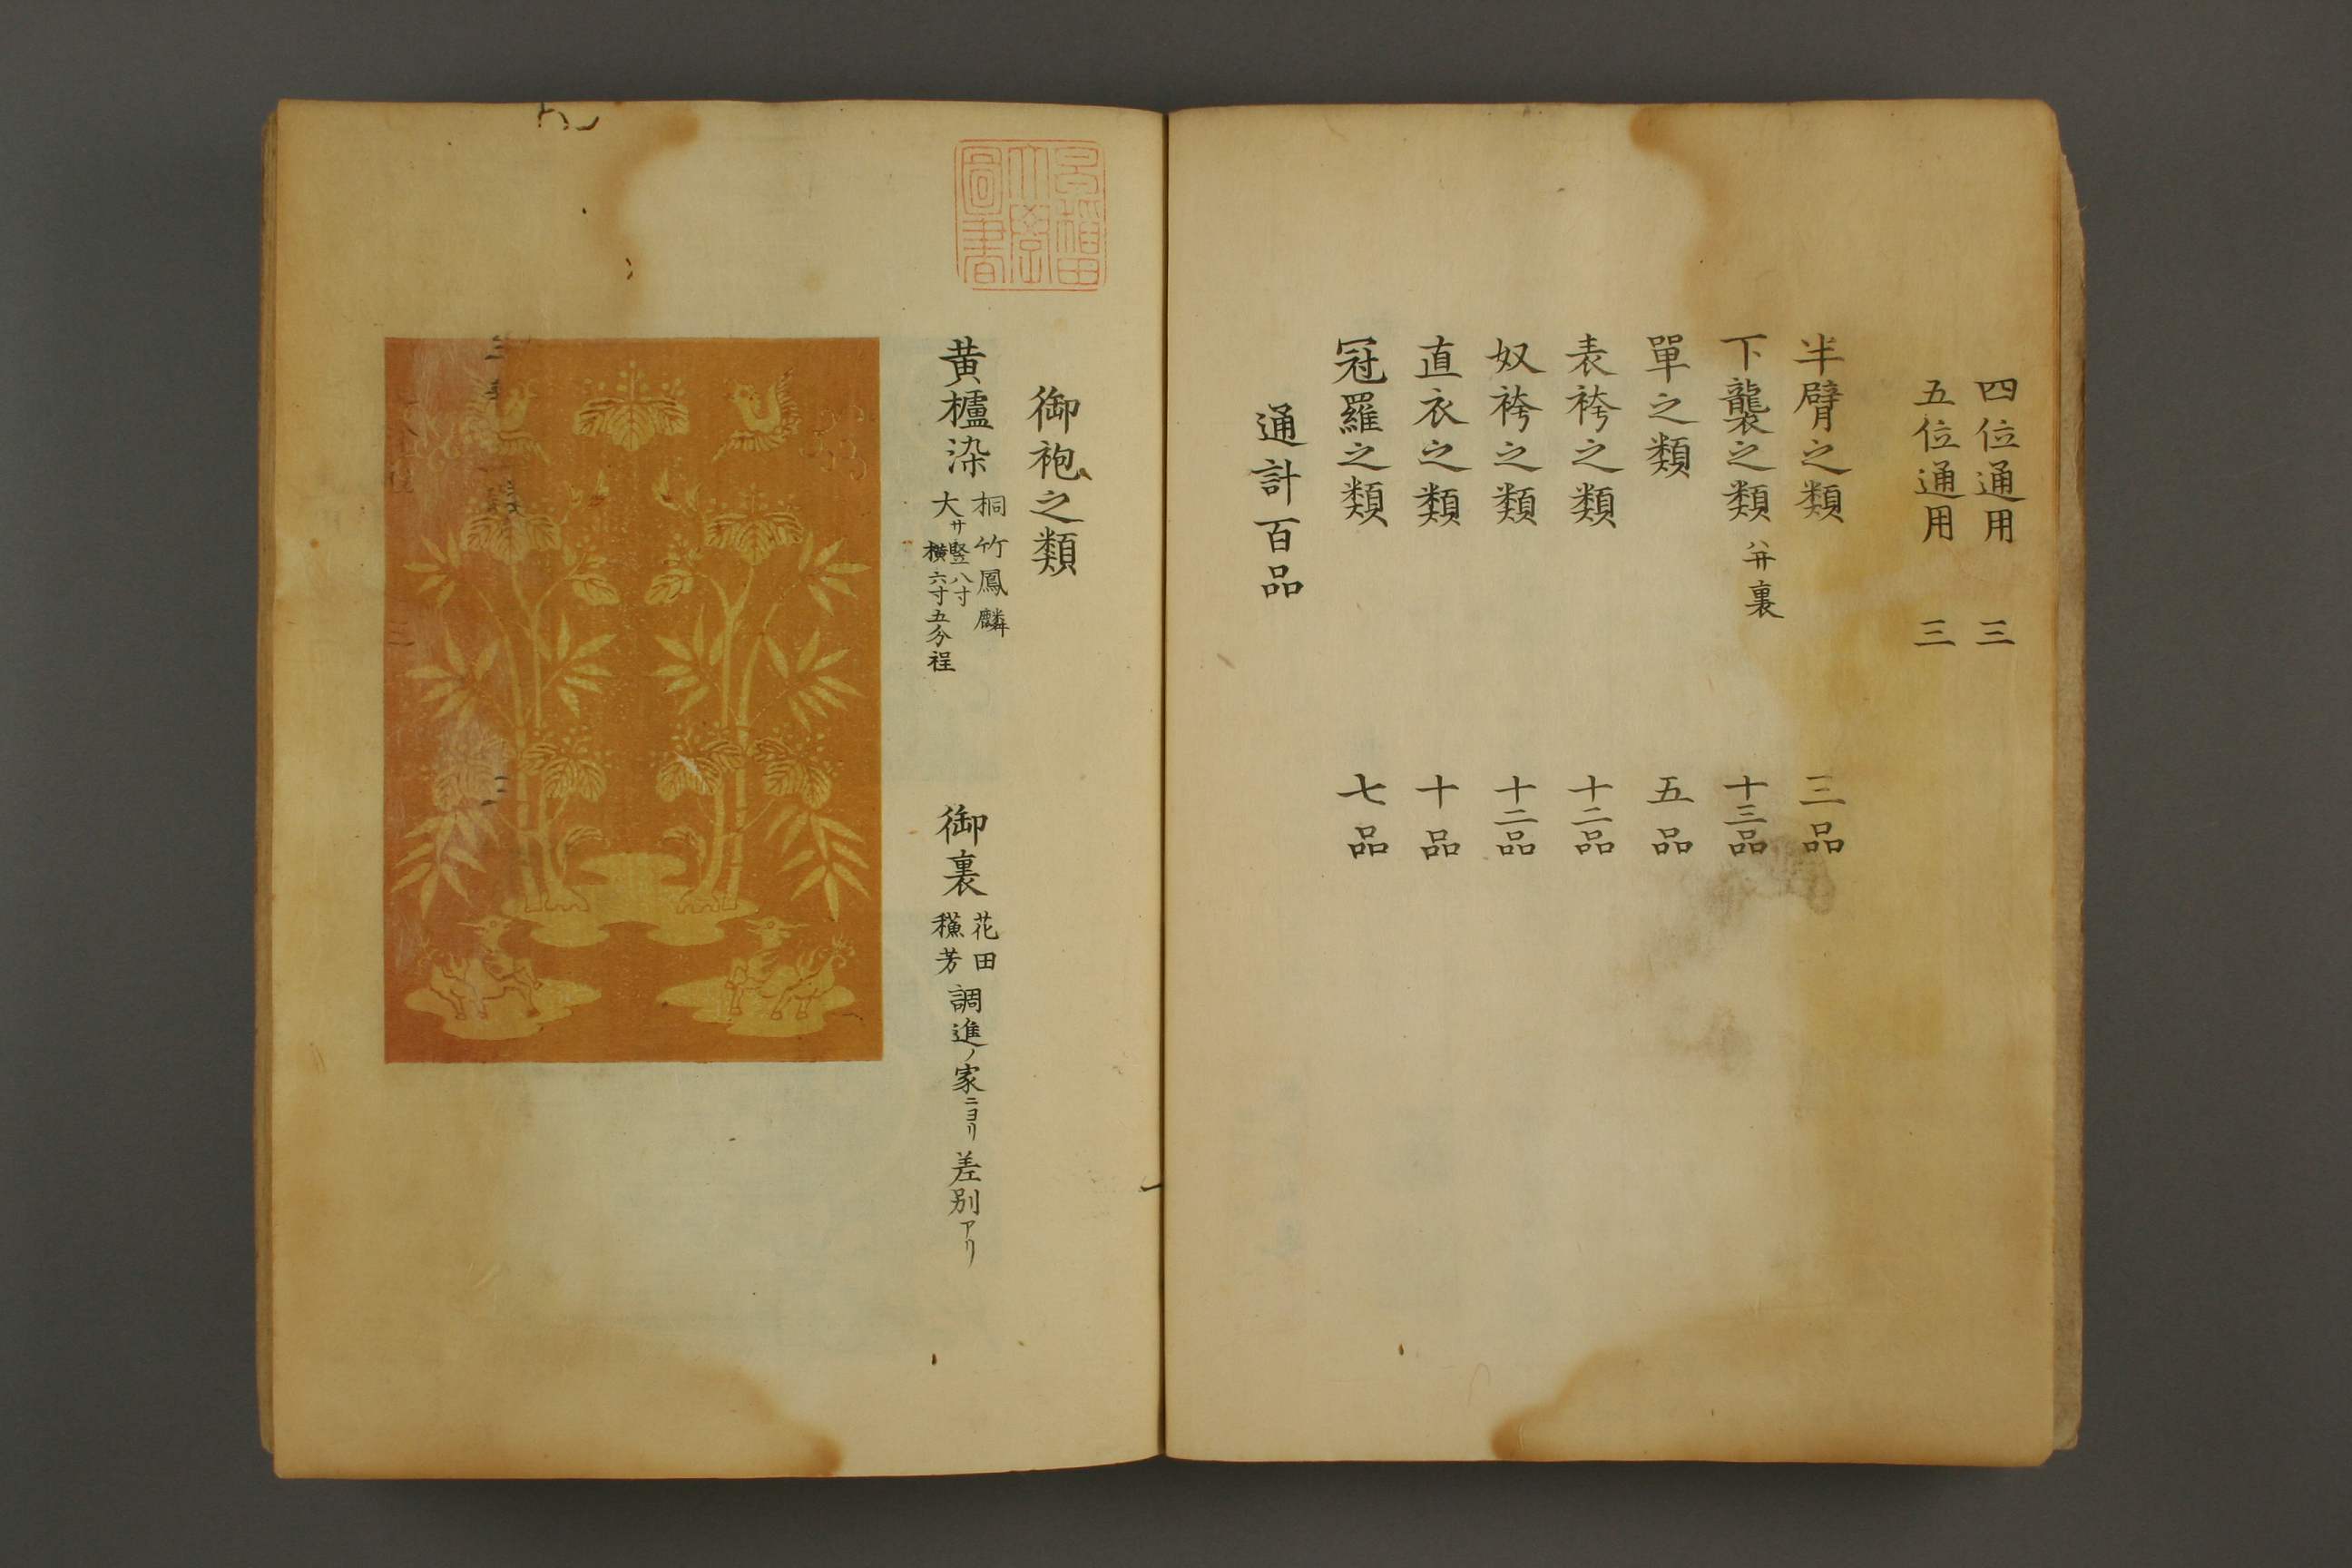 四位通用 三
五位通用 三
半臂之類 三品
下襲之類 裏 十三品
單之類 五品
表袴之類 十二品
奴袴之類 十二品
直衣之類 十品
冠羅之類 七品
通計百品
早稲田
大學
圖書
御袍之類
黄櫨染 桐竹鳳麟
大サ竪八寸
横六寸五分程
御裏 花田
蘓芳
調進ノ家ニヨリ差別アリ